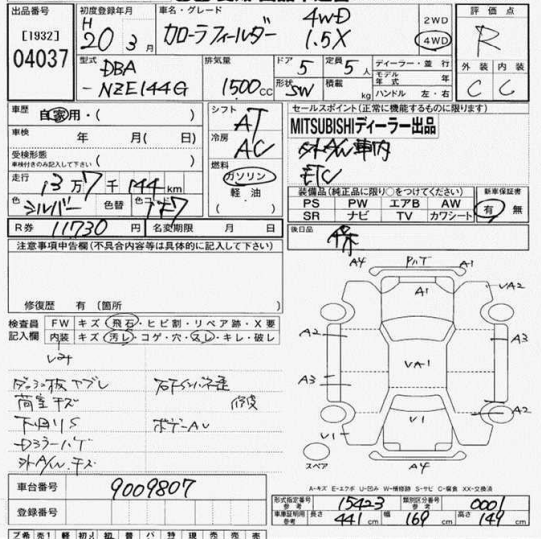 出品番号 初度登録年月 車名・グレード 4WD 2WD 評価点
[1932] H 20 3月 カローラフィールダー 1.5X 4WD R
04037 型式 DBA-NZE144G 排気量 1500cc ドア 5 定員 5人 ディーラー・並行 外装 内装
形状 SW 積載 kg モデル年式 年 ハンドル 左・右 C C
車歴 自家用・( ) シフト AT セールスポイント(正常に機能するものに限ります)
車検 年 月( 日) 冷房 AC MITSUBISHIディーラー出品
受検形態 車検付きのみ記入して下さい ( )
走行 13万7千144km 燃料 ガソリン 軽・油 ETC
色 シルバー 色替 色コード 1F7
装備品(純正品に限り○をつけてください) 新車保証書
PS PW エアB AW 有 無
SR ナビ TV カワシート
R券 11730円 名変期限 月 日 後日品 保
注意事項申告欄(不具合内容等は具体的に記入して下さい)
修復歴 有 (箇所
検査員記入欄 FW キズ・飛石・ヒビ割・リペア跡・X要
内装 キズ・汚レ・コゲ・穴・スレ・キレ・破レ
ダッシュ板ヤブレ
荷室キズ
下回りS
ボデーAU
A4 A1 A1 VA2
A2 A3
A3 VA1
A2
V1 V1
スペア A4
A-キズ E-エクボ U-凹み W-補修跡 S-サビ C-腐食 XX-交換済
車台番号 9009807
登録番号
形式指定番号 参考 15423 類別区分番号 参考 0001
車庫証明用 参考 長さ 441cm 幅 169cm 高さ 149cm